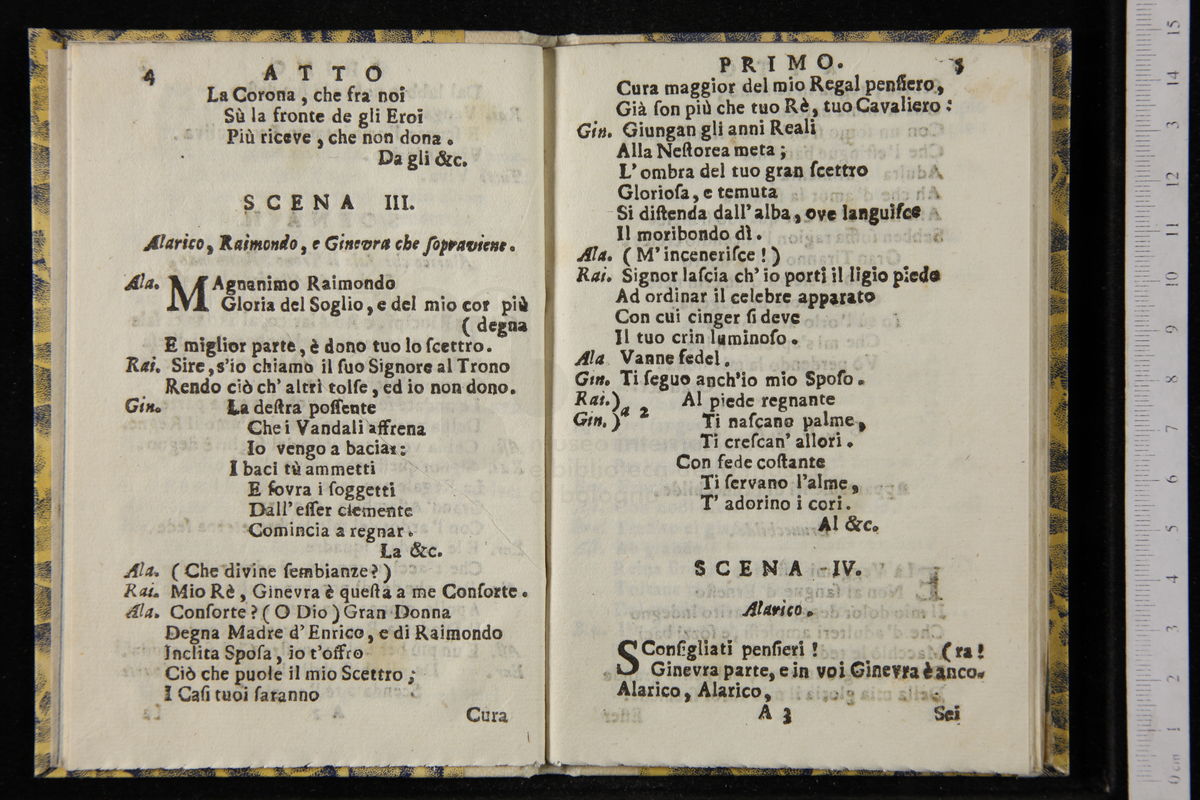 4 ATTO
La Corona, che fra noi
Sù la fronte de gli Eroi
Più riceve, che non dona.
Da gli &c.
SCENA III.
Alarico, Raimondo, e Ginevra che ſopraviene.
Ala. MAgnanimo Raimondo
Gloria del Soglio, e del mio cor più
(degna
E miglior parte, è dono tuo lo ſcettro.
Rai. Sire, s'io chiamo il ſuo Signore al Trono
Rendo ciò ch' altri tolſe, ed io non dono.
Gin. La deſtra poſſente
Che i Vandali affrena
Io vengo a baciar:
I baci tù ammetti
E ſovra i ſoggetti
Dall' eſſer clemente
Comincia a regnar.
La &c.
Ala. (Che divine ſembianze?)
Rai. Mio Rè, Ginevra è queſta a me Conſorte.
Ala. Conſorte? (O Dio) Gran Donna
Degna Madre d' Enrico, e di Raimondo
Inclita Spoſa, io t'offro
Ciò che puole il mio Scettro;
I Caſi tuoi ſaranno
Cura
PRIMO. 5
Cura maggior del mio Regal penſiero,
Già ſon più che tuo Rè, tuo Cavaliero:
Gin. Giungan gli anni Reali
Alla Neſtorea meta;
L' ombra del tuo gran ſcettro
Glorioſa, e temuta
Si diſtenda dall' alba, ove languiſce
Il moribondo dì.
Ala. (M' inceneriſce!)
Rai. Signor laſcia ch' io porti il ligio piede
Ad ordinar il celebre apparato
Con cui cinger ſi deve
Il tuo crin luminoſo.
Ala Vanne fedel.
Gin. Ti ſeguo anch'io mio Spoſo.
Rai.) Al piede regnante
Gin.) a 2 Ti naſcano palme,
Ti creſcan' allori.
Con fede coſtante
Ti ſervano l'alme,
T' adorino i cori.
Al &c.
SCENA IV.
Alarico.
SConſigliati penſieri! (ra!
Ginevra parte, e in voi Ginevra è anco-
Alarico, Alarico,
A 3 Sei